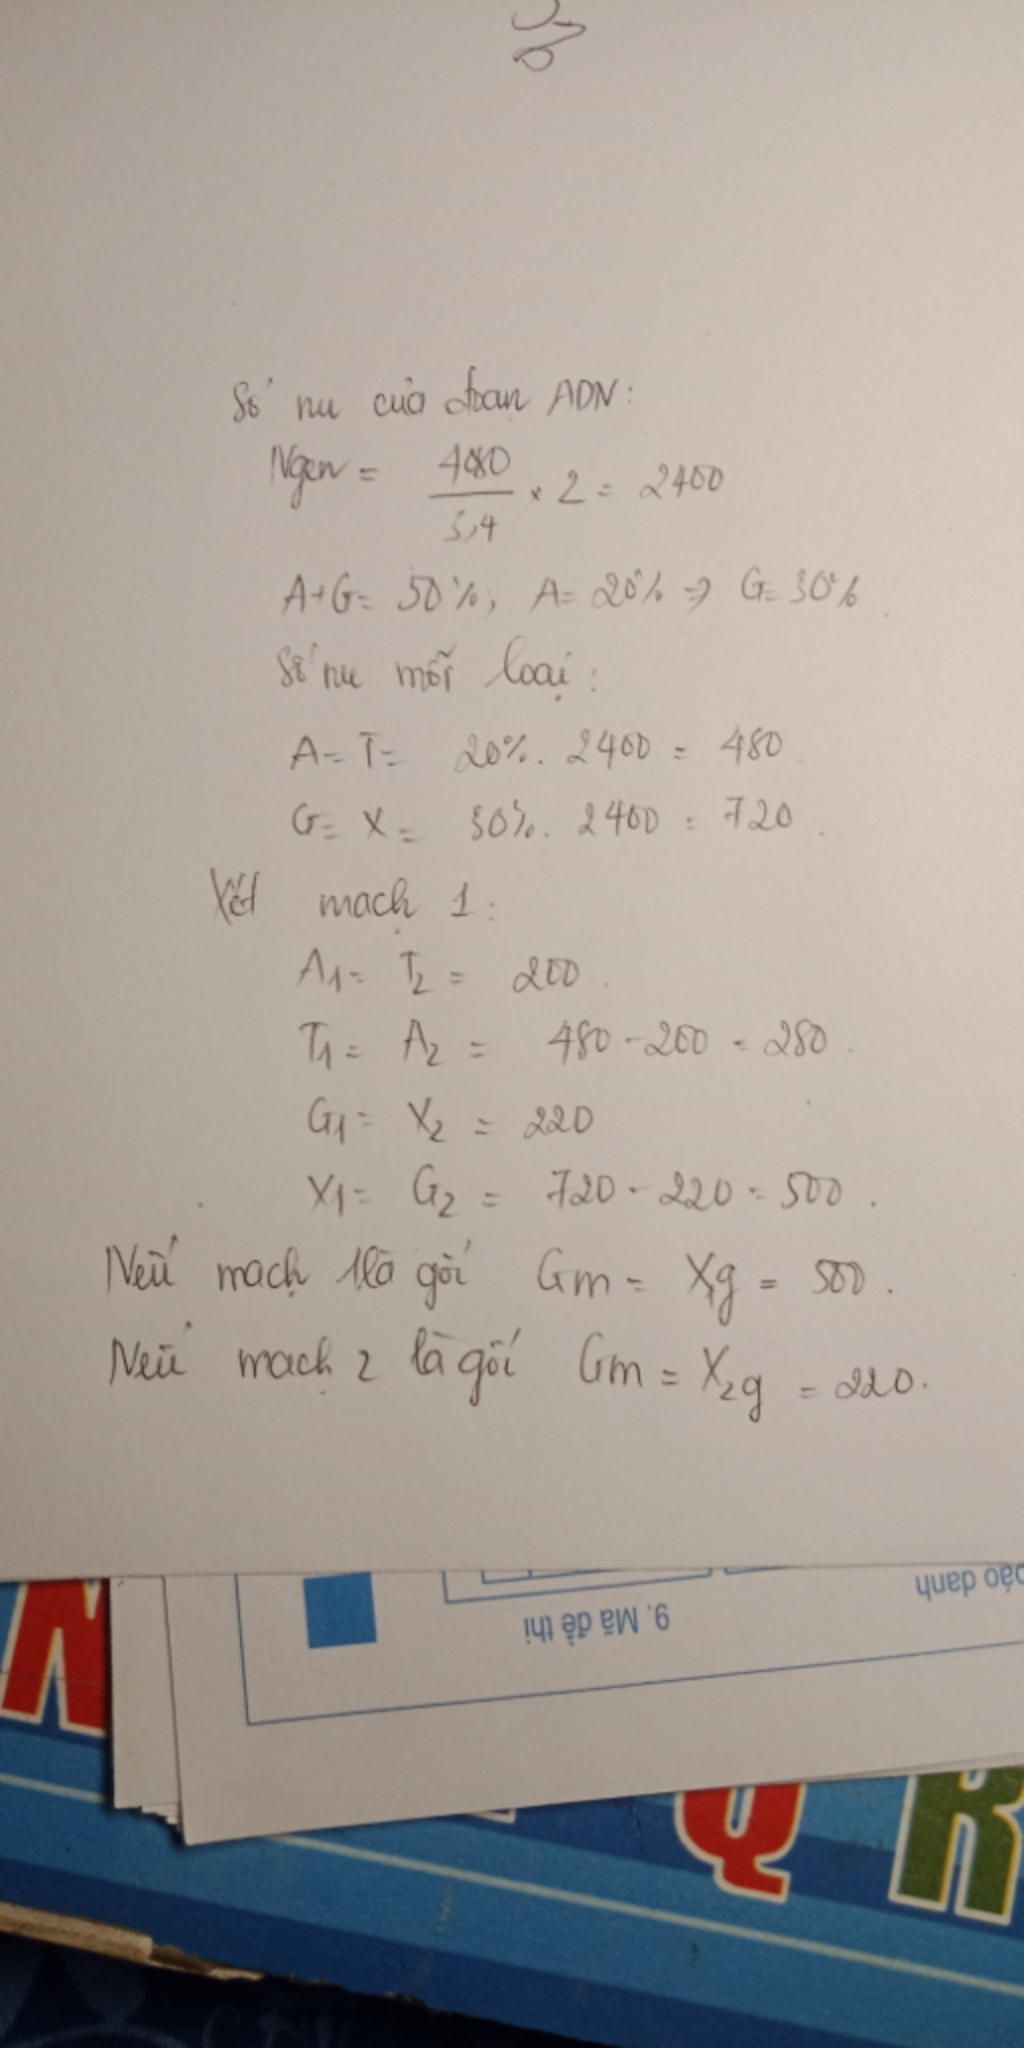 Số nu của đoạn ADN:
Ngen = 4080/3,4 × 2 = 2400
A+G= 50%, A= 20% => G= 30%
Số nu mỗi loại:
A= T= 20%. 2400 = 480
G= X = 30%. 2400 = 720.
Xét mạch 1:
A1= T2 = 200.
T1= A2 = 480 - 200 = 280.
G1= X2 = 220
X1= G2 = 720 - 220 = 500.
Nếu mạch 1 là gốc Gm = X1g = 500.
Nếu mạch 2 là gốc Gm = X2g = 220.
9. Mã đề thi
báo danh
Q R